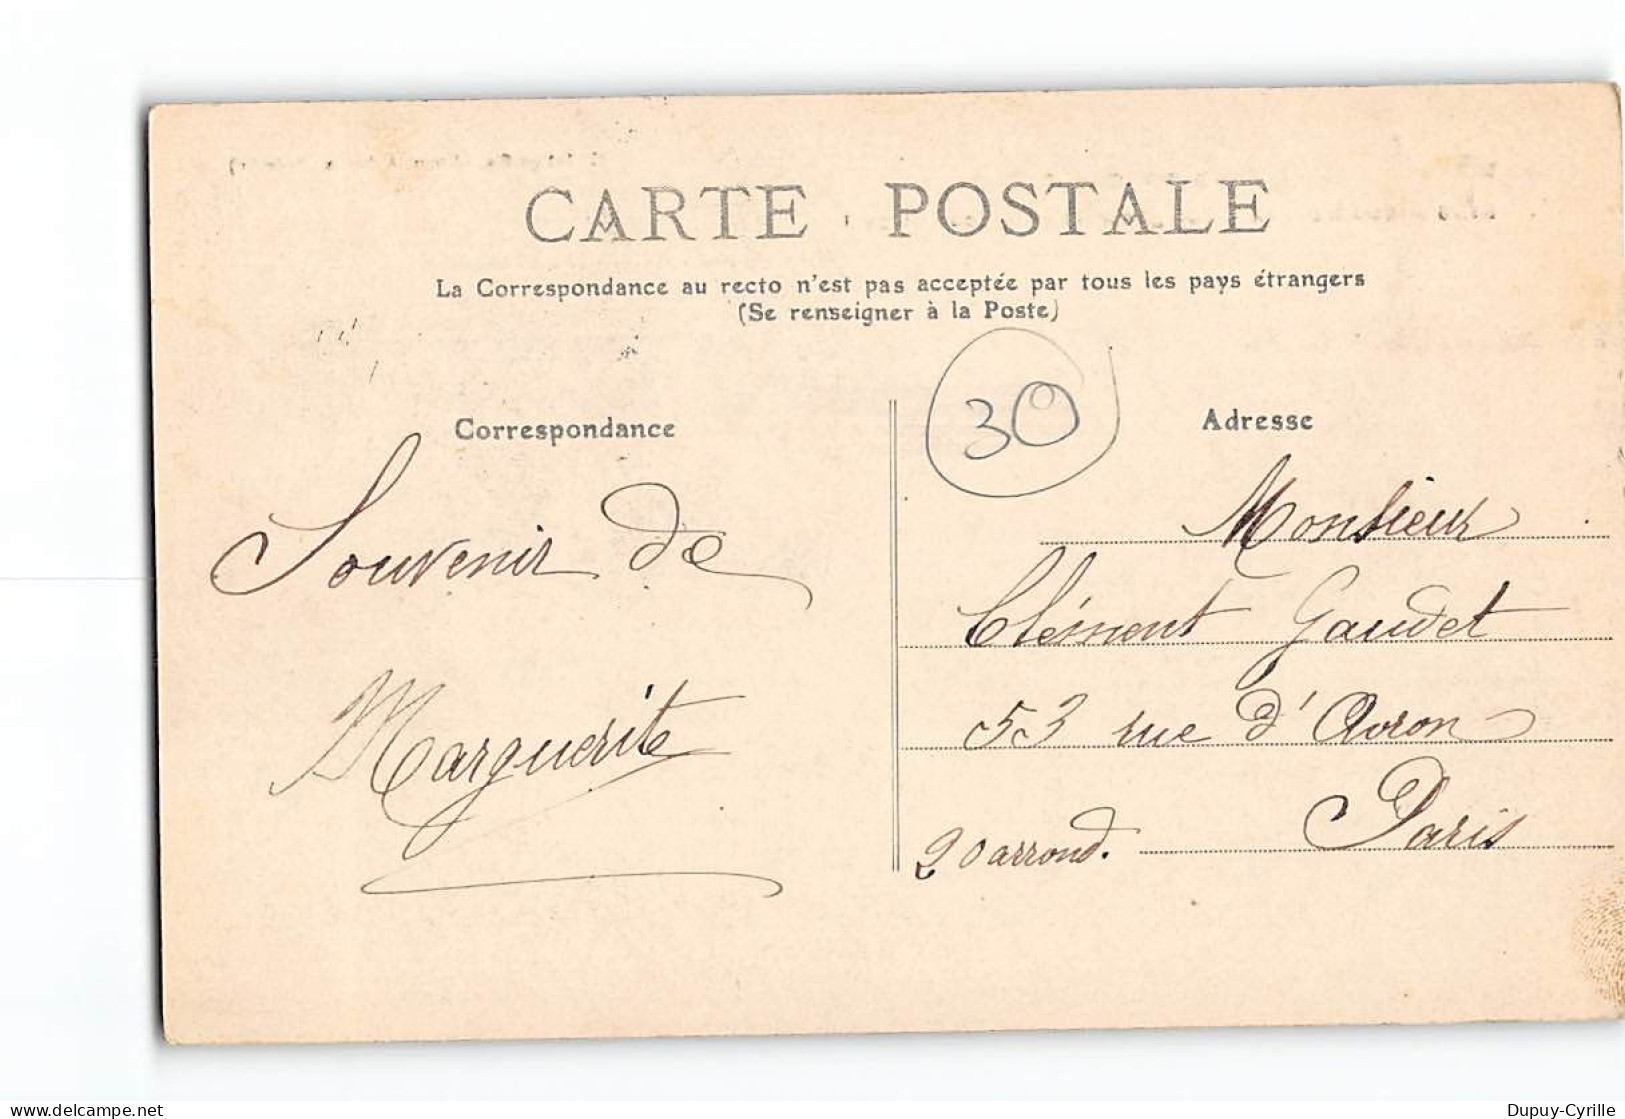 CARTE POSTALE
La Correspondance au recto n'est pas acceptée par tous les pays étrangers
(Se renseigner à la Poste)
30
Correspondance
Souvenir de
Marguerite
Adresse
Monsieur
Clément Gaudet
53 rue d'Avron
Paris
20 arrond.
Dupuy-Cyrille